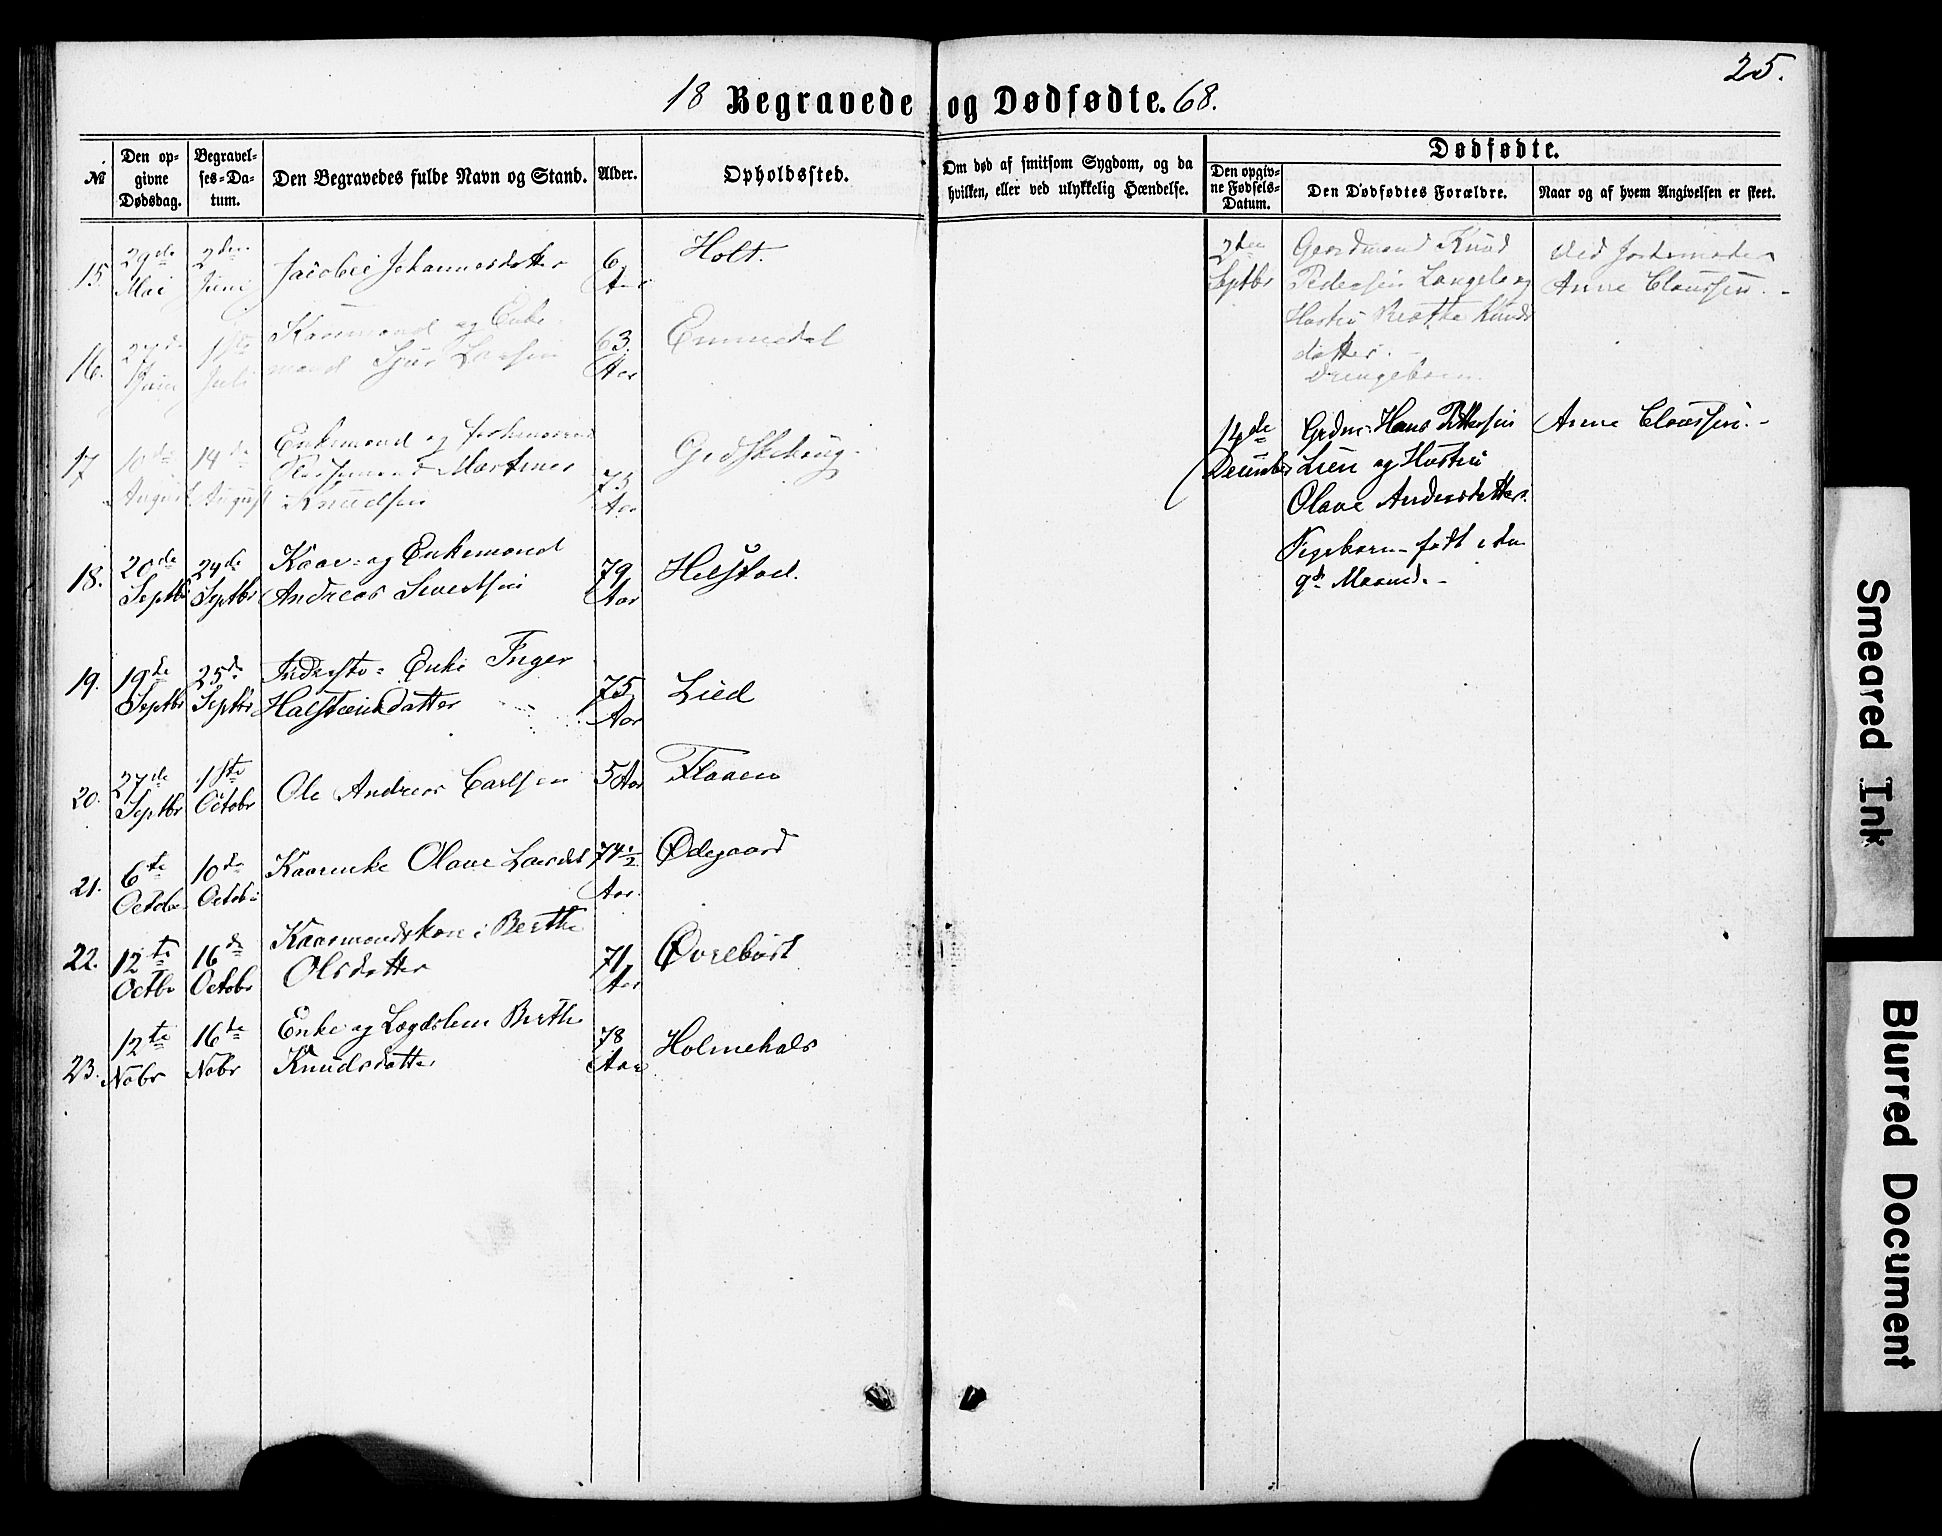 25.
18 Begravede og Dødfødte. 68.
№
Den opgivne Dødsdag.
Begravelses-Datum.
Den Begravedes fulde Navn og Stand.
Alder.
Opholdssted.
Om død af smitsom Sygdom, og da
hvilken, eller ved ulykkelig Hændelse.
Dødfødte.
Den opgivne Fødsels-Datum.
Den Dødfødtes Forældre.
Naar og af hvem Angivelsen er skeet.
15.
29de Mai
2den Juni
Jacobei Johannesdatter
6 Aar
Holt.
16.
27de Juni
1ste Juli
Kaarmand og Enke-
mand Lassen
63. Aar
Emmedal
17
10de August
14de August
Enkemand og
Martinus
Knudsen
75 Aar
18.
20de Septbr
24de Septbr
Kaar- og Enkemand
Andreas Sivertsen
79 Aar
Helstad.
19.
19de Septbr
25de Septbr
Indersto- Enke Inger
Halsteinsdatter
75 Aar
Lied
20.
27de Septbr
1ste Octobr
Ole Andreas Carlsen
5 Aar
Flaaen
21.
6te Octobr
10de Octobr
Kaarenke Olave Larsdt
74½ Aar.
Ødegaard
22.
12te Octbr
16de Octobr
Kaarmandskone Berthe
Olsdatter
71 Aar
Øvrebust
23.
12te Nobr
16de Nobr
Enke og Lægdslem Berthe
Knudsdatter
78 Aar
Holmehals
2den Septbr
Gaardmand Knud
Pedersen Langelo og
Hustru Berthe Knuds
datter.
Drengebarn.
Ved Jordemoder
Anne Claussen.
14de December
Grdm: Hans Pettersen
Lien og Hustru
Olave Andersdatter.
Pigebarn - født i den
9de Maaned.
Anne Claussen.
Smeared Ink
Blurred Document